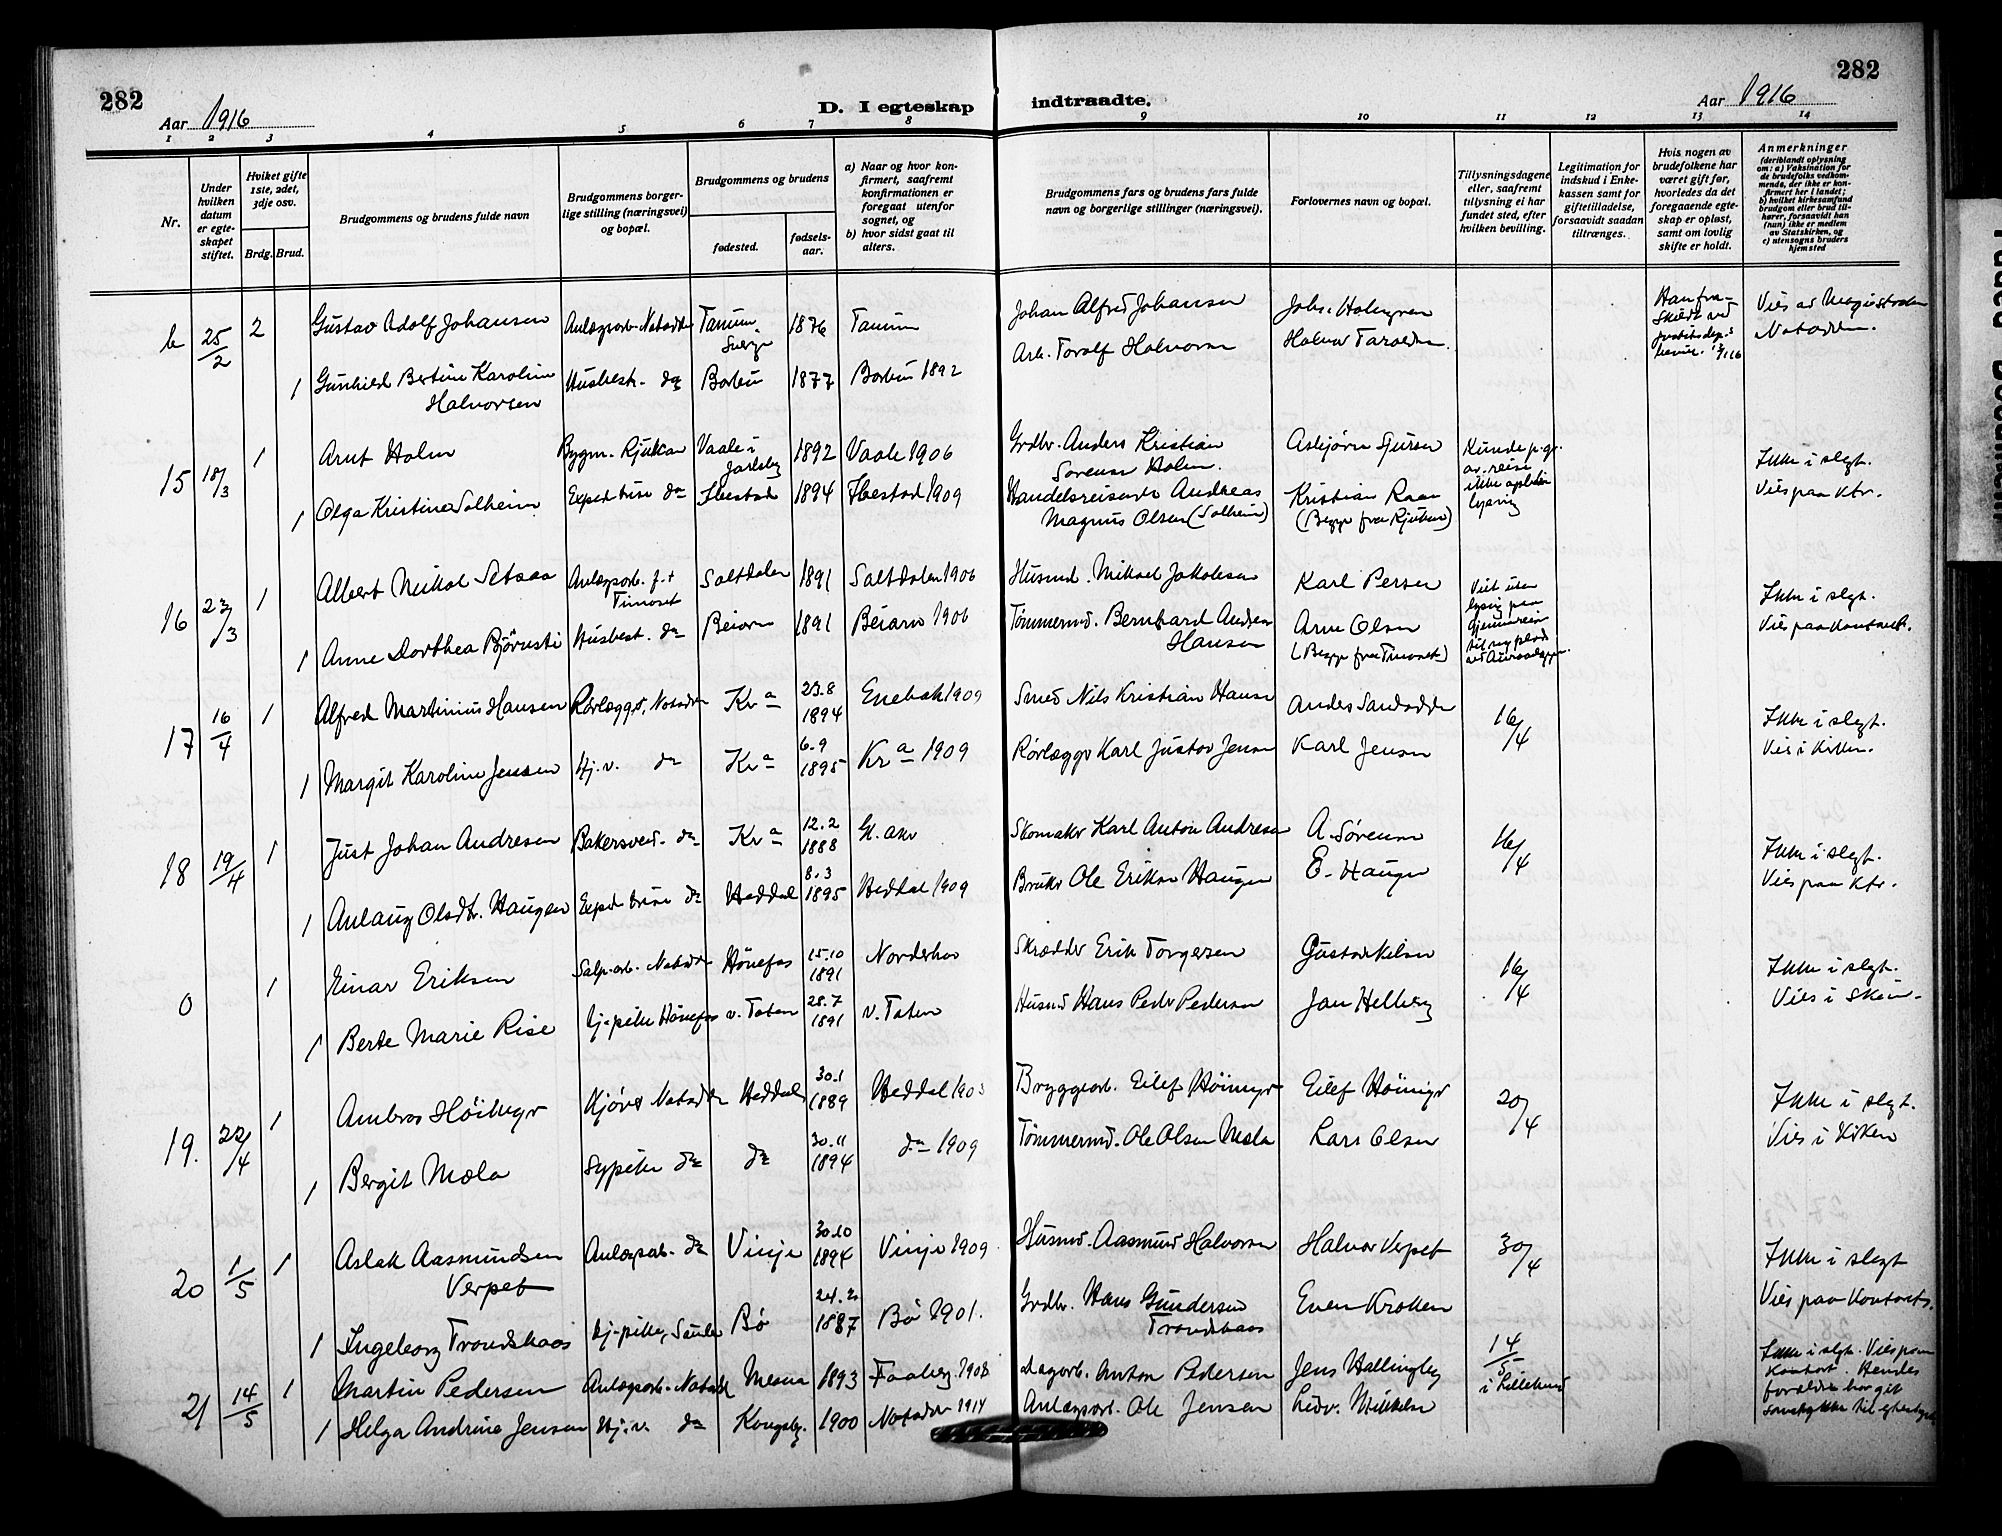 282
282
Aar 1916
D. I egteskap
indtraadte.
Aar 1916
1 2 3 4 5 6 7 8 9 10 11 12 13 14
Nr.
Under hvilken datum er egteskapet stiftet.
Hviket gifte 1ste, 2det, 3dje osv.
Brdg. Brud.
Brudgommens og brudens fulde navn
Brudgommens borgerlige stilling (næringsvei) og bopæl.
Brudgommens og brudens
fødested.
fødselsaar.
a) Naar og hvor konfirmert, saafremt konfirmationen er foregaat utenfor sognet, og
b) hvor sidst gaat til alters.
Brudgommens fars og brudens fars fulde navn og borgerlige stillinger (næringsvei).
Forlovernes navn og bopæl.
Tillysningsdagene eller, saafremt tillysning ei har fundet sted, efter hvilken bevilling.
Legitimation for indskud i Enkekassen samt for giftetilladelse, forsaavidt saadan tiltrænges.
Hvis nogen av brudefolkene har været gift før, hvorledes da det foregaaende egteskap er opløst, samt om lovlig skifte er holdt.
Anmerkninger
(deriblandt oplysning om: a) Vaksination for de brudefolks vedkommende, der ikke er konfirmert her i landet; b) hvilket kirkesamfund brudgom eller brud tilhører, forsaavidt han (hun) ikke er medlem av Statskirken, og c) utensogns bruders hjemsted
b 25/2 2 Gustav Adolf Johansen Anlægsarb. Notodden Tanum. 1876 Tanum Johan Alfred Johansen Johs. Holmgren
Vies av Magistraten Notodden.
1 Gunhild Bertine Karoline Halvorsen Husbest. do Borbu 1877 Borbu 1892 Arb. Torolf Halvorsen
15 18/3 1 Arnt Holm Bygm. Rjukan Vaale i Jarlsbg 1892 Vaale 1906 Grdbr. Anders Kristian Sørensen Holm. Asbjørn Sjursen
Ikke i slegt.
Vies paa Ktr.
1 Olga Kristine Solheim Expeditrise do Ibestad 1894 Ibestad 1909 Handelsreisende Andreas Magnus Olsen (Solheim) Kristian Raan
(Begge fra Rjukan)
16 23/3 1 Albert Mikal Setsaa Anlægsarb. f.t Timoset Saltdalen 1891 Saltdalen 1906 Husmd. Mikael Jakobsen Karl Persen
Ikke i slegt.
Vies paa Kontoret.
1 Anne Dorthea Bjørnsti Husbest. do Beiarn 1891 Beiarn 1906 Tømmermd. Bernhard Andreas Hansen Arne Olsen
17 16/4 1 Alfred Martinius Hansen Rørlægger, Notodden Kra 23.8 1894 Enebak 1909 Smed Nils Kristian Hansen 16/4
Ikke i slegt.
Vies i Kirken.
1 Margit Karoline Jensen Hj.v. do Kra 6.9 1895 Kra 1909 Rørlægger Karl Gustav Jensen Karl Jensen
18 19/4 1 Just Johan Andresen Bakersvend. do Kra 12.2 1888 Gl. aker Skomaker Karl Anton Andresen A. Sørensen 16/4
Ikke i slegt.
Vies paa Ktr.
1 Anlaug Olsdtr. Haugen Expeditrise do Heddal 8.3 1895 Heddal 1909 Bruker Ole Eriksen Haugen E. Haugen
0 1 Einar Eriksen Salp.arb. Notodden Hønefos 15.10 1891 Norderhov Skrædder Erik Torgersen 16/4
Ikke i slegt.
Vies i Skien.
1 Berte Marie Rise Tj.pike Hønefos v. Toten 28.7 1891 v. Toten Husmd Hans Peder Pedersen Jan Helberg
19. 22/4 1 Ambros Høimyr Kjører Notodden Heddal 30.1 1889 Heddal 1903 Bryggearb. Eilef Høimyr Eilef Høimyr 20/4
Ikke i slegt.
Vies i Kirken
1 Bergit Mæla Sypike do do 30.11 1894 do 1909 Tømmermd. Ole Olsen Mæla Lars Olsen
20 1/5 1 Aslak Aasmundsen Verpet Anlægsarb. do Vinje 30.10 1894 Vinje 1909. Husmd. Aasmund Halvorsen Halvor Verpet 30/4
Ikke i slegt
Vies paa Kontoret.
1 Ingeborg Trondshaas Tj.pike, Bø 1887 Bø 1901. Grdbr. Hans Gundersen Trondshaas Even Kroken
21 14/5 1 Martin Pedersen Anlægsarb. Notodden 1893 Faaberg 1908 Dagarb. Anton Pedersen Jens Hallingby 14/5
Ikke i slegt. Vies paa Kontoret. Hendes forældre har git samtykke til egteskapet
1 Helga Andrine Jensen Hj.v. do Kongsbg. 1900 Notodden 1914 Anlægsarb. Ole Jensen Ludv. Mikkelsen